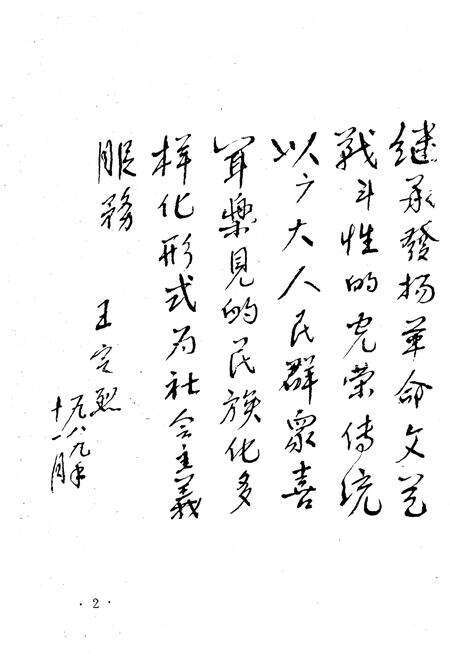 继承發扬革命文艺
战斗性的光荣传统
以广大人民群衆喜
闻樂見的民族化多
样化形式为社会主義
服務
王定烈
一九八九年
十一月
· 2 ·